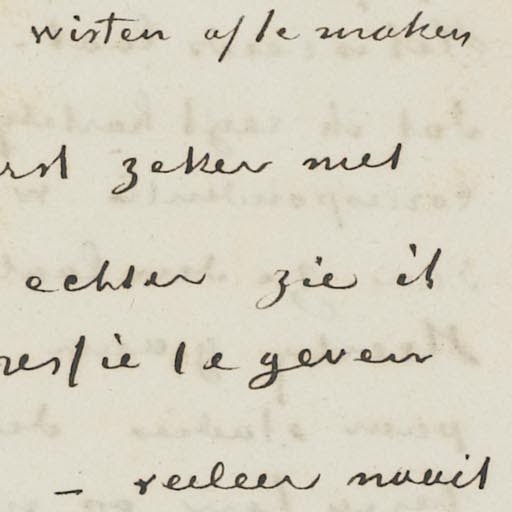 wisten af te maken
rst zeker met
echter zie ik
resſie te geven
– nooit